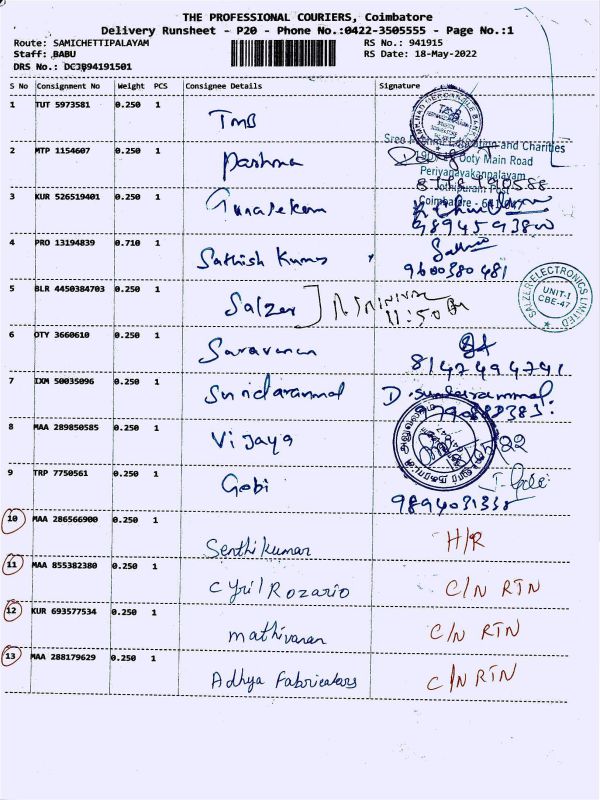 THE PROFESSIONAL COURIERS, Coimbatore
Delivery Runsheet - P20 - Phone No.:0422-3505555 - Page No.:1
Route: SAMICHETTIPALAYAM RS No.: 941915
Staff: BABU RS Date: 18-May-2022
DRS No.: DCJB94191501
S No Consignment No Weight PCS Consignee Details Signature
1 TUT 5973581 0.250 1
TMB
2 MTP 1154607 0.250 1
Sree Education and Charities
Ooty Main Road
Periyanayakanpalayam
Jothipuram Post
Coimbatore - 641 047
3 KUR 526519401 0.250 1
Gunasekaran
9894593800
4 PRO 13194839 0.710 1
Sathish Kumar
9600380481
5 BLR 4450384703 0.250 1
Salzer
11:50
SALZER ELECTRONICS LIMITED
UNIT-I
CBE-47
6 OTY 3660610 0.250 1
Saravanan
8147494741
7 IXM 50035096 0.250 1
Sundarammal D. Sundarammal
8 MAA 289850585 0.250 1
Vijaya
9 TRP 7750561 0.250 1
Gobi
9894031338
10 MAA 286566900 0.250 1
Senthikumar H/R
11 MAA 855382380 0.250 1
Cyril Rozario C/N RTN
12 KUR 693577534 0.250 1
mathivanan C/N RTN
13 MAA 288179629 0.250 1
Adhya Fabricators C/N RTN